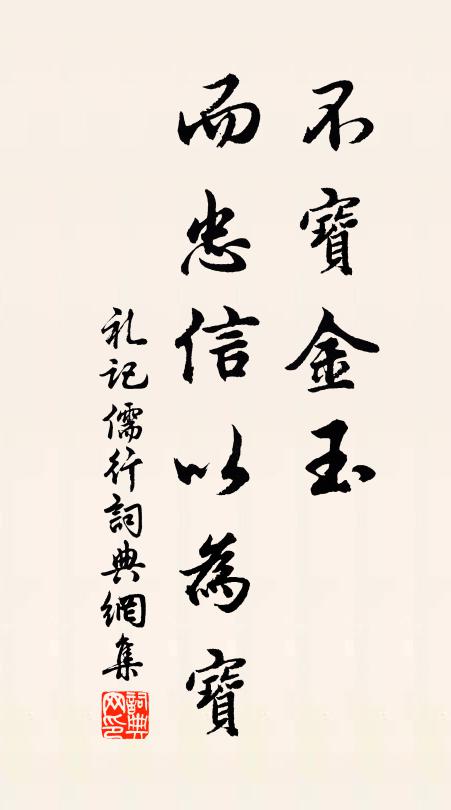 不寶金玉
而忠信以為寶
礼记儒行詞典網集
詞典网印